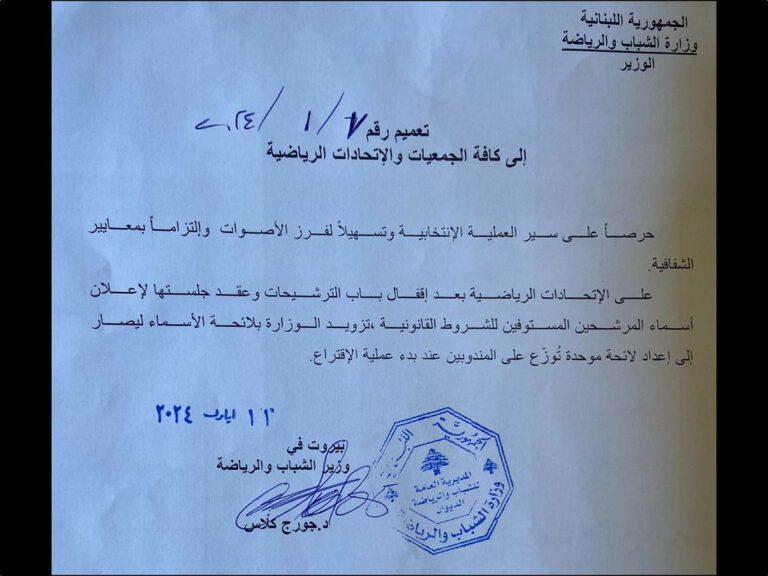 الجمهورية اللبنانية
وزارة الشباب والرياضة
الوزير
تعميم رقم ٧ / ١ / ٢٠٢٤
إلى كافة الجمعيات والإتحادات الرياضية
حرصاً على سير العملية الإنتخابية وتسهيلاً لفرز الأصوات وإلتزاماً بمعايير
الشفافية.
على الإتحادات الرياضية بعد إقفال باب الترشيحات وعقد جلستها لإعلان
أسماء المرشحين المستوفين للشروط القانونية ،تزويد الوزارة بلائحة الأسماء ليصار
إلى إعداد لائحة موحدة تُوزّع على المندوبين عند بدء عملية الإقتراع.
١١ ايلول ٢٠٢٤
بيروت في
وزير الشباب والرياضة
د.جورج كلّاس
الجمهورية
المديرية العامة
للشباب والرياضة
الديوان
وزارة الشباب والرياضة